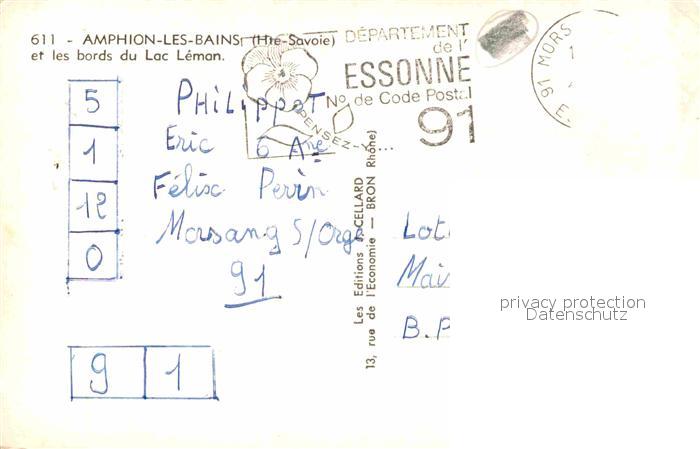 611 - AMPHION-LES-BAINS (Hte-Savoie)
et les bords du Lac Léman.
DÉPARTEMENT
de l'
ESSONNE
No. de Code Postal
91
PENSEZ-Y...
91 MORS
5
1
12
0
PHILIPPOT
Eric 6 Ane
Félix Perrin
Morsang S/Orge
91
9 1
Les Editions CELLARD
13, rue de l'Economie — BRON Rhône)
Lot
Mai
B.P
privacy protection
Datenschutz